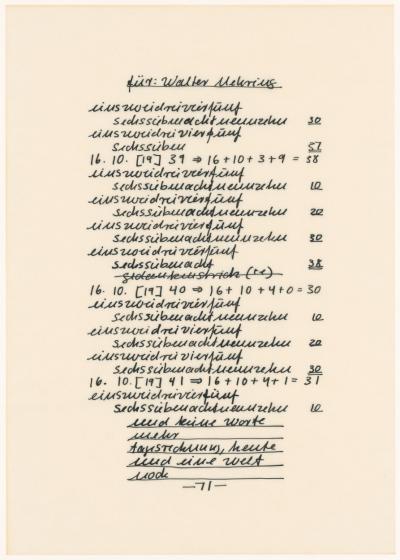 für: Walter Mehring
einszweidreivierfünf
sechssiebenachtneunzehn 30
einszweidreivierfünf
sechssieben 57
16. 10. [19] 39 ⇒ 16+10+3+9 = 38
einszweidreivierfünf
sechssiebenachtneunzehn 10
einszweidreivierfünf
sechssiebenachtneunzehn 20
einszweidreivierfünf
sechssiebenachtneunzehn 30
einszweidreivierfünf
sechssiebenacht 38
gedankenstrich
16. 10. [19] 40 ⇒ 16+10+4+0 = 30
einszweidreivierfünf
sechssiebenachtneunzehn 10
einszweidreivierfünf
sechssiebenachtneunzehn 20
einszweidreivierfünf
sechssiebenachtneunzehn 30
16. 10. [19] 41 ⇒ 16+10+4+1 = 31
einszweidreivierfünf
sechssiebenachtneunzehn 10
und keine worte
mehr
tagsrechnung, heute
und eine welt
noch
—71—